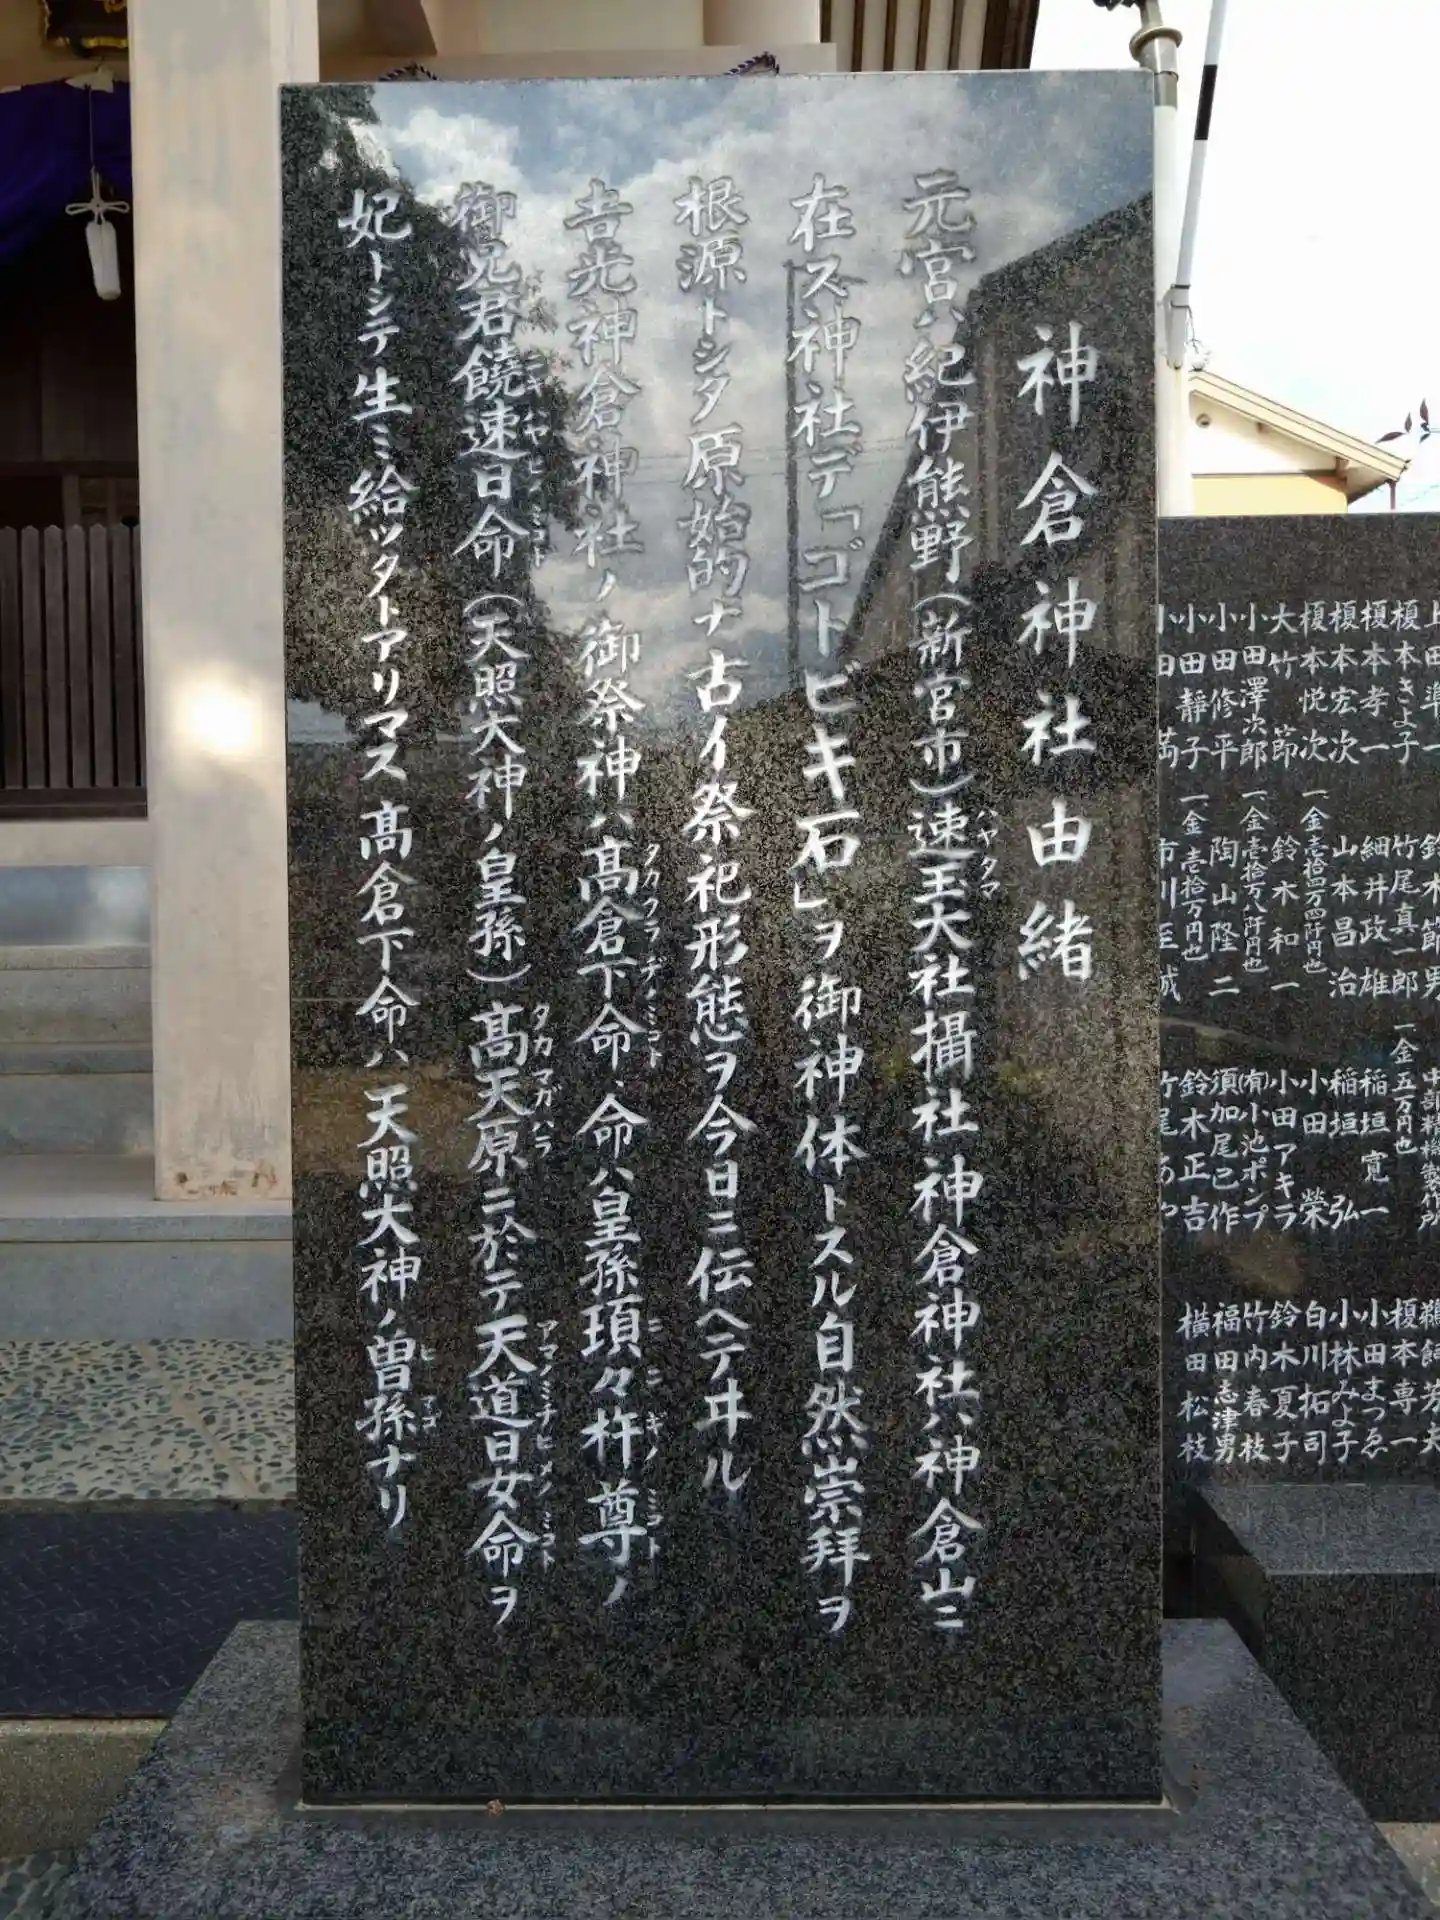 神倉神社由緒
元宮ハ紀伊熊野(新宮市)速玉大社攝社神倉神社ハ神倉山ニ
ハヤタマ
在ズ神社デ「ゴトビキ石」ヲ御神体トスル自然崇拜ヲ
根源トシタ原始的ナ古イ祭祀形態ヲ今日ニ伝ヘテヰル
𠮷光神倉神社ノ御祭神ハ髙倉下命、命ハ皇孫瓊々杵尊ノ
タカクラデノミコト
ニニギノミコト
御兄君饒速日命(天照大神ノ皇孫)髙天原ニ於テ天道日女命ヲ
ニギハヤヒノミコト
タカマガハラ
アマノミチヒメノミコト
妃トシテ生ミ給ツタトアリマス髙倉下命ハ天照大神ノ曽孫ナリ
ヒマゴ
榎本きよ子
榎本孝一
榎本宏次
榎本悦次
大竹節
小田澤次郎
小田修平
小田靜子
鈴木節男
竹尾真一郎
細井政雄
山本昌治
一金壱拾四万四阡円也
鈴木和一
一金壱拾八阡円也
陶山隆二
一金壱拾万円也
市川至誠
中部精機製作所
一金五万円也
稲垣寛一
稲垣弘
小田榮
小田アキラ
(有)小池ポンプ
須加尾己作
鈴木正吉
榎本専一
小田まつゑ
小林みよ子
白川拓司
鈴木夏子
竹内春枝
福田志津男
横田松枝